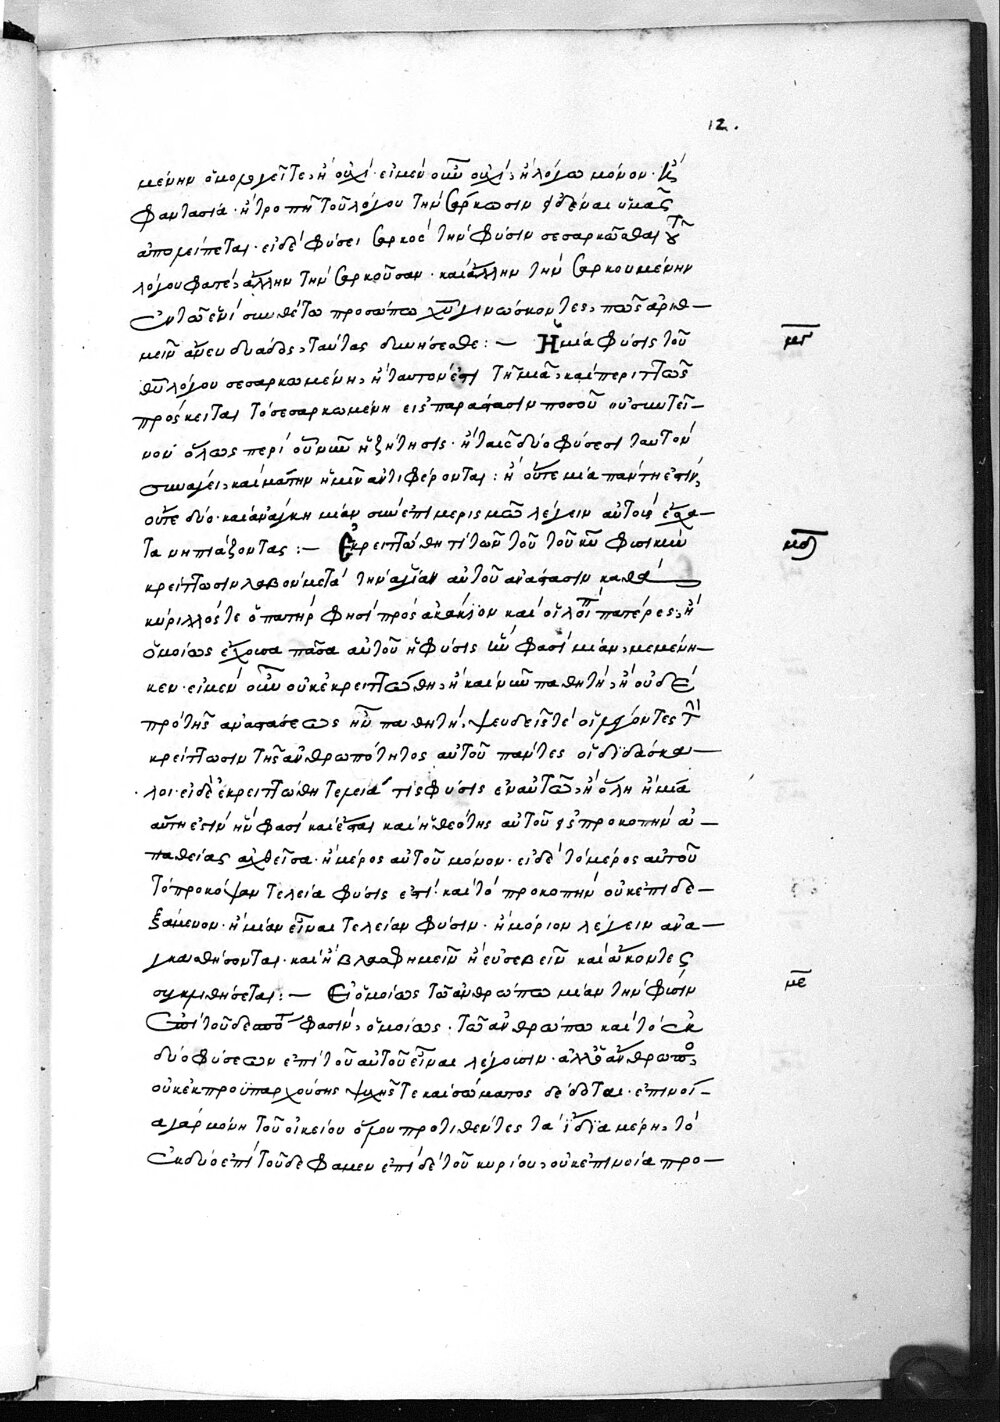 12.
μένην ὁμολογεῖτε, ἢ οὐχί· εἰ μὲν οὖν οὐχί, ἢ λόγω μόνον· κ(αὶ)
φαντασία· ἢ τροπῆ τοῦ λόγου τὴν σάρκωσιν εἰδέναι ὑμᾶς
ἀπολείπεται· εἰ δὲ φύσει σαρκὸς τὴν φύσιν σεσαρκῶσθαι τοῦ
λόγου φατὲ, ἄλλην τὴν σαρκοῦσαν· καὶ ἄλλην τὴν σαρκουμένην
ἐν τῶ ἑνὶ συνθέτω προσώπω χῦ γινώσκοντες, πῶς ἀριθ-
μεῖν ἄνευ δυάδος ταύτας δυνήσεσθε :— Ἡ μία φύσις τοῦ
μγ
θῦ λόγου σεσαρκωμένη, ἢ ταυτόν ἐστι τῆ μιᾶ, καὶ περιττῶς
πρόσκειται τὸ σεσαρκωμένη εἰς παράστασιν ποσοῦ οὐ συντεῖ-
νον ὅλως περὶ οὗ νῦν ἡ ζήτησις· ἢ ταῖς δύο φύσεσι ταυτὸν
συνάγει, καὶ μάτην ἡμῖν ἀντιφέρονται : ἢ οὔτε μία πάντη ἐστὶν,
οὔτε δύο· καὶ ἀνάγκη μίαν σὺν ἐπιμερισμῶ λέγειν αὐτοὺς ἔσχα-
τα νηπιάζοντας :— Ἐκρειττώθη τι τῶν τοῦ τοῦ κῦ φυσικῶν
μδ
κρείττωσιν λαβὸν μετὰ τὴν ἁγίαν αὐτοῦ ἀνάστασιν καθὰ
κύριλλός τε ὁ πατήρ φησι πρὸς ἀκάκιον καὶ οἱ λοιποὶ πατέρες, ἢ
ὁμοίως ἔχουσα πᾶσα αὐτοῦ ἡ φύσις ἣν φασὶ μίαν, μεμένη-
κεν· εἰ μὲν οὖν οὐκ ἐκρειττώθη, ἢ καὶ νῦν παθητὴ, ἢ οὐδὲ
πρὸ τῆς ἀναστάσεως ἦν παθητὴ, ψεύδεσθέ οἱ λέγοντες τὴν
κρείττωσιν τῆς ἀνθρωπότητος αὐτοῦ πάντες οἱ διδάσκα-
λοι· εἰ δὲ ἐκρειττώθη τελεία τις φύσις ἐν αὐτῶ, ἢ ὅλη ἡ μία
αὕτη ἐστὶν ἥν φασὶ καὶ ἔσται καὶ ἡ θεότης αὐτοῦ εἰς προκοπὴν ἀ-
παθείας ἀχθεῖσα· ἢ μέρος αὐτοῦ μόνον· εἰ δὲ τὸ μέρος αὐτοῦ
τὸ προκόψαν τελεία φύσις ἐστὶ· καὶ τὸ προκοπὴν οὐκ ἐπιδε-
ξάμενον· ἢ μίαν εἶναι τελείαν φύσιν· ἢ μόριον λέγειν ἀνα-
γκασθήσονται· καὶ ἢ βλασφημεῖν ἢ εὐσεβεῖν καὶ ἄκοντες
συγκριθήσεται :— Εἰ ὁμοίως τῶ ἀνθρώπω μίαν τὴν φύσιν
με
ἐπὶ τοῦ δεσπότου φασὶν, ὁμοίως· τῶ ἀνθρώπω καὶ τὸ ἐκ
δύο φύσεων ἐπὶ τοῦ αὐτοῦ εἶναι λέγουσιν· ἀλλ' ὁ ἄνθρωπος
οὐκ ἐκ προϋπαρχούσης ψυχῆς τε καὶ σώματος δέδοται· ἐπινοί-
α γὰρ μόνη τοῦ οἰκείου ὅλου προτιθέντες τὰ ἴδια μέρη, τὸ
ἐκ δύο ἐπὶ τοῦδε φαμὲν ἐπὶ δὲ τοῦ κυρίου, οὐκ ἐπινοία προ-